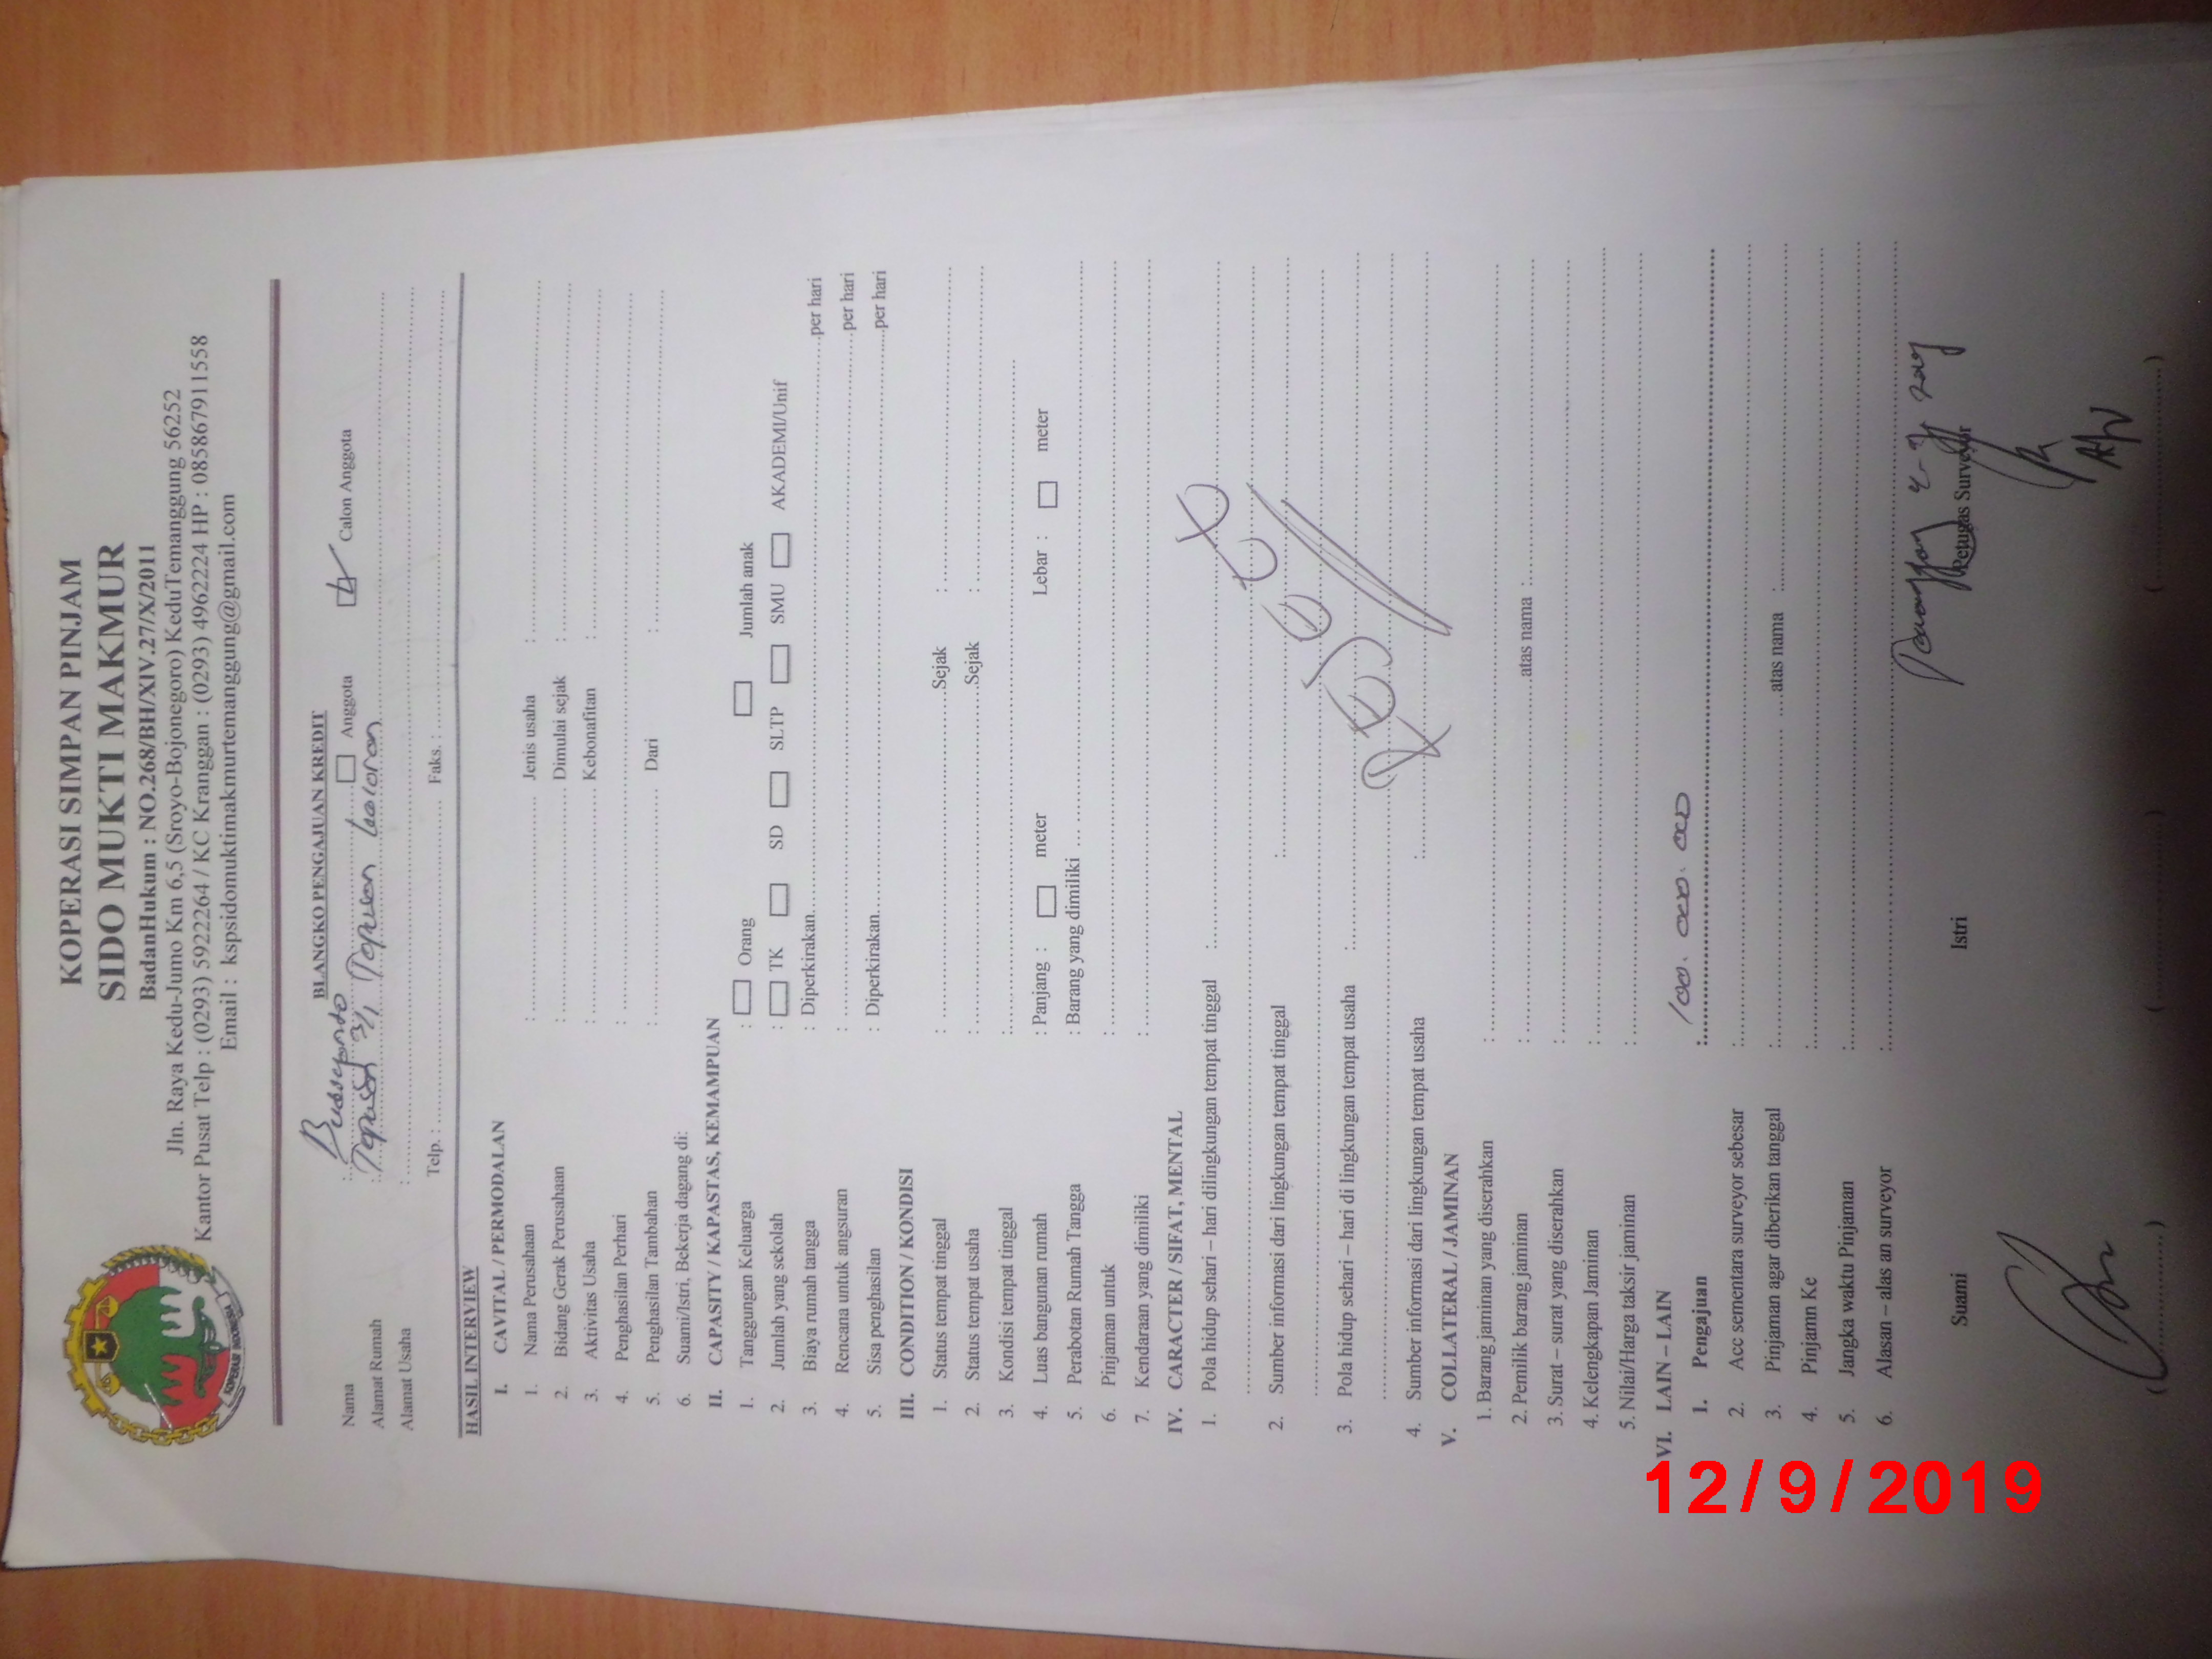 KOPERASI SIMPAN PINJAM
SIDO MUKTI MAKMUR
BadanHukum : NO.268/BH/XIV.27/X/2011
Jln. Raya Kedu-Jumo Km 6,5 (Sroyo-Bojonegoro) KeduTemanggung 56252
Kantor Pusat Telp : (0293) 5922264 / KC Kranggan : (0293) 4962224 HP : 085867911558
Email : kspsidomuktimakmurtemanggung@gmail.com
KOPERASI INDONESIA
BLANGKO PENGAJUAN KREDIT
Nama : Anggota Calon Anggota
Alamat Rumah :
Alamat Usaha :
Telp. : Faks. :
HASIL INTERVIEW
I. CAVITAL / PERMODALAN
1. Nama Perusahaan : Jenis usaha :
2. Bidang Gerak Perusahaan : Dimulai sejak :
3. Aktivitas Usaha : Kebonafitan :
4. Penghasilan Perhari :
5. Penghasilan Tambahan : Dari :
6. Suami/Istri, Bekerja dagang di:
II. CAPASITY / KAPASTAS, KEMAMPUAN
1. Tanggungan Keluarga : Orang Jumlah anak
2. Jumlah yang sekolah : TK SD SLTP SMU AKADEMI/Unif
3. Biaya rumah tangga : Diperkirakan per hari
4. Rencana untuk angsuran : per hari
5. Sisa penghasilan : Diperkirakan per hari
III. CONDITION / KONDISI
1. Status tempat tinggal : Sejak :
2. Status tempat usaha : Sejak :
3. Kondisi tempat tinggal :
4. Luas bangunan rumah : Panjang : meter Lebar : meter
5. Perabotan Rumah Tangga : Barang yang dimiliki
6. Pinjaman untuk :
7. Kendaraan yang dimiliki :
IV. CARACTER / SIFAT, MENTAL
1. Pola hidup sehari – hari dilingkungan tempat tinggal :
2. Sumber informasi dari lingkungan tempat tinggal :
3. Pola hidup sehari – hari di lingkungan tempat usaha :
4. Sumber informasi dari lingkungan tempat usaha :
V. COLLATERAL / JAMINAN
1. Barang jaminan yang diserahkan :
2. Pemilik barang jaminan : atas nama :
3. Surat – surat yang diserahkan :
4. Kelengkapan Jaminan :
5. Nilai/Harga taksir jaminan :
VI. LAIN – LAIN
1. Pengajuan : 100.000.000
2. Acc sementara surveyor sebesar :
3. Pinjaman agar diberikan tanggal : atas nama :
4. Pinjamn Ke :
5. Jangka waktu Pinjaman :
6. Alasan – alas an surveyor :
Suami Istri Petugas Surveyor
12/9/2019